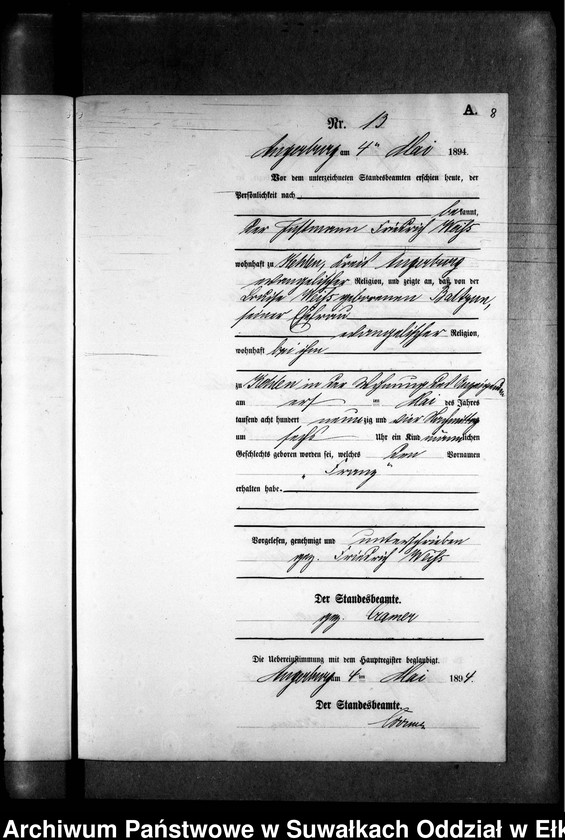 A. 8
Nr. 13.
Angerburg am 4ten Mai 1894.
Vor dem unterzeichneten Standesbeamten erschien heute, der
Persönlichkeit nach
bekannt,
der Friedrich Weiß
wohnhaft zu Kehlen, Kreis Angerburg
evangelischer Religion, und zeigte an, daß von der
Weiß geborenen
seiner Ehefrau
evangelischer Religion,
wohnhaft bei ihm
zu Kehlen in der Wohnung des
am ersten Mai des Jahres
tausend acht hundert neunzig und vier Nachmittags
um sechs Uhr ein Kind männlichen
Geschlechts geboren worden sei, welches den Vornamen
„Franz“
erhalten habe.
Vorgelesen, genehmigt und unterschrieben
gez. Friedrich Weiß
Der Standesbeamte.
gez. Cramer
Die Uebereinstimmung mit dem Hauptregister beglaubigt.
Angerburg am 4ten Mai 1894.
Der Standesbeamte.
Cramer
Archiwum Państwowe w Suwałkach Oddział w Ełk